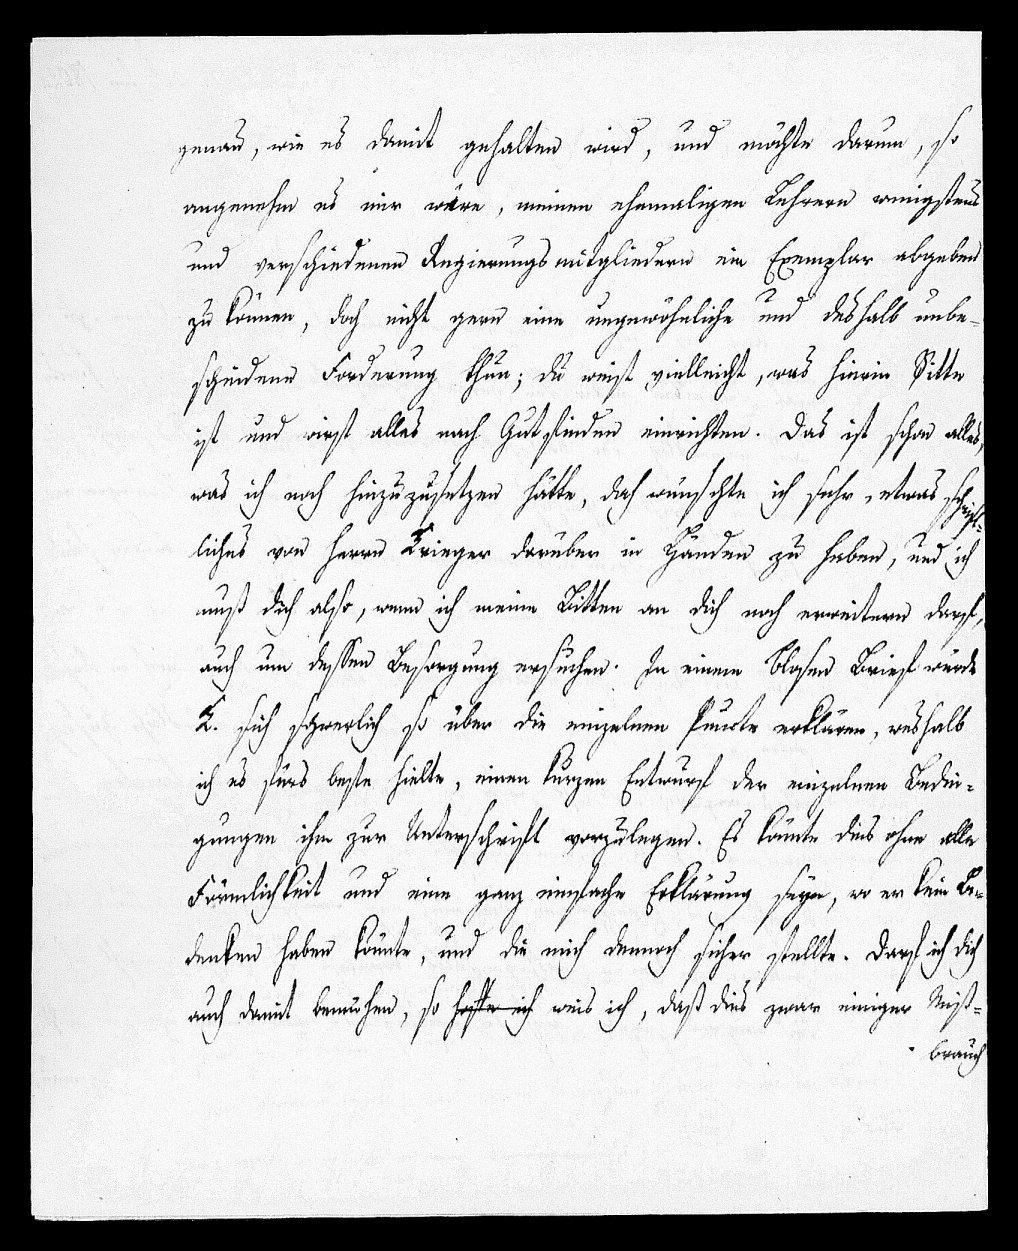 genau, wie es damit gehalten wird, und möchte darum, so
angenehm es mir wäre, meinen ehemaligen Lehrern wenigstens
und verschiedenen Regierungsmitgliedern ein Exemplar abgeben
zu können, doch nicht gern eine ungewöhnliche und deshalb unbe-
scheidene Forderung thun; du weist vielleicht, was hierin Sitte
ist und wirst alles nach Gutfinden einrichten. Das ist schon alles,
was ich noch hinzuzusetzen hätte, doch wünschte ich sehr, etwas schrift-
liches von Herrn Krieger darüber in Händen zu haben, und ich
muß dich also, wenn ich meine Bitten an dich noch erweitern darf,
auch um dessen Besorgung ersuchen. In einem blosen Brief würde
K. sich schwerlich so über die einzelnen Puncte erklären, weshalb
ich es fürs beste hielte, einen kurzen Entwurf der einzelnen Bedin-
gungen ihm zur Unterschrift vorzulegen. Es könnte dies ohne alle
Förmlichkeit und eine ganz einfache Erklärung seyn, wo er kein Be-
denken haben könnte, und die mich dennoch sicher stellte. Darf ich dich
auch damit bemühen, so hoffe ich weis ich, daß dies zwar einiger Miß-
brauch